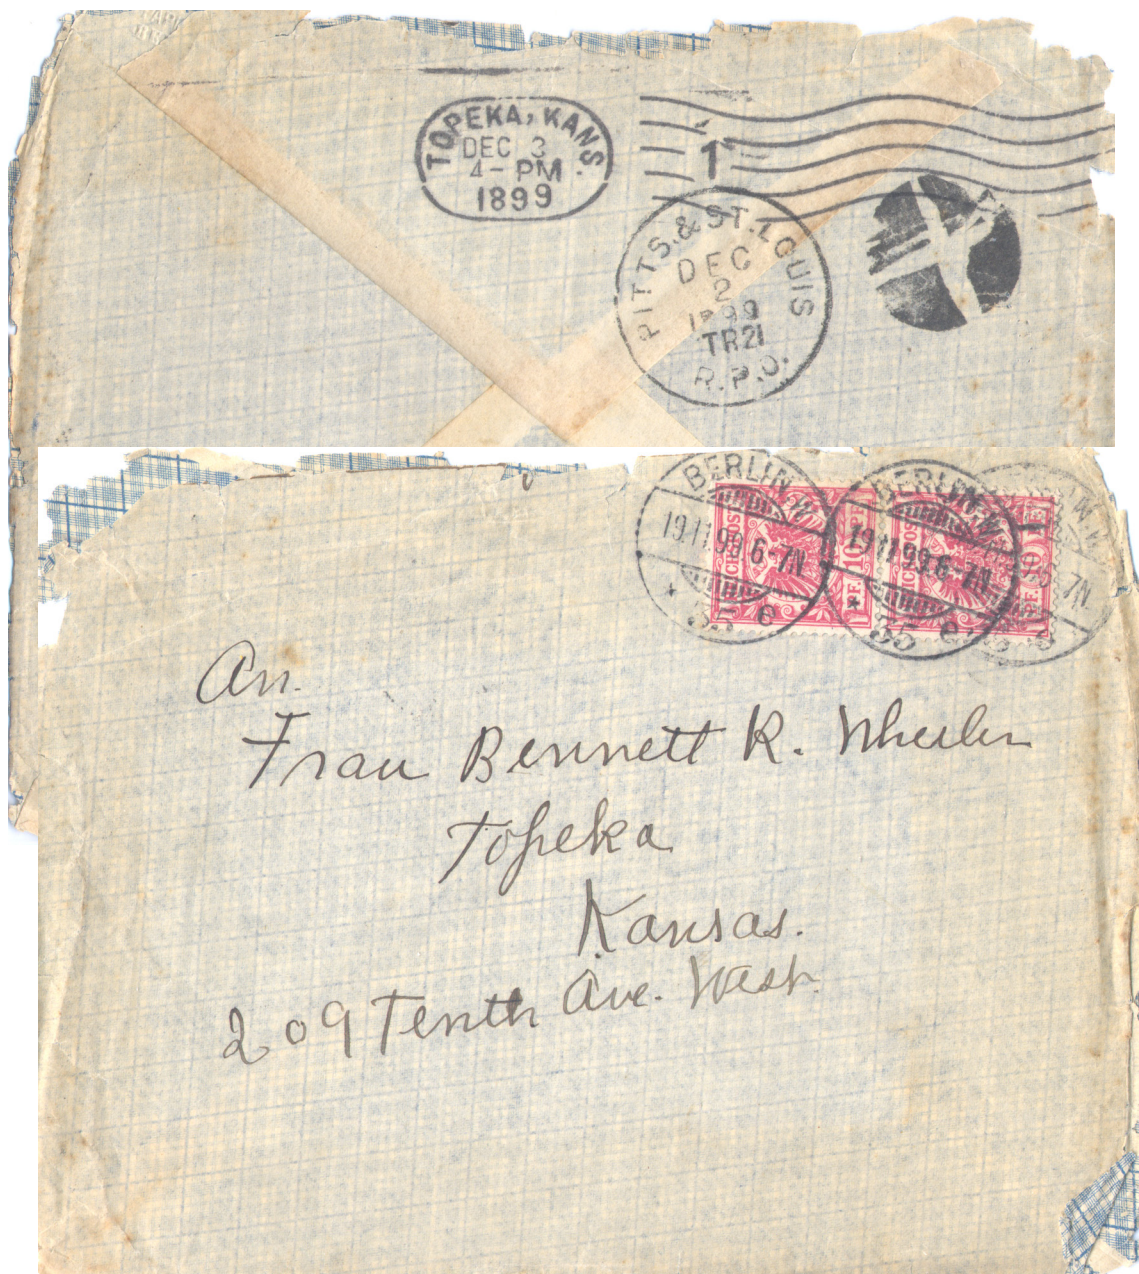 TOPEKA, KANS.
DEC 3
4- PM
1899
1
PITTS. & ST. LOUIS
DEC
2
1899
TR21
R.P.O.
BERLIN.W.
19.11.99.6-7N.
* 35 e
BERLIN.W.
19.11.99.6-7N.
* 35 e
7N.
10 PF. 10
10 PF. 10
An.
Frau Bennett R. Wheeler
Topeka
Kansas.
209 Tenth Ave. West.